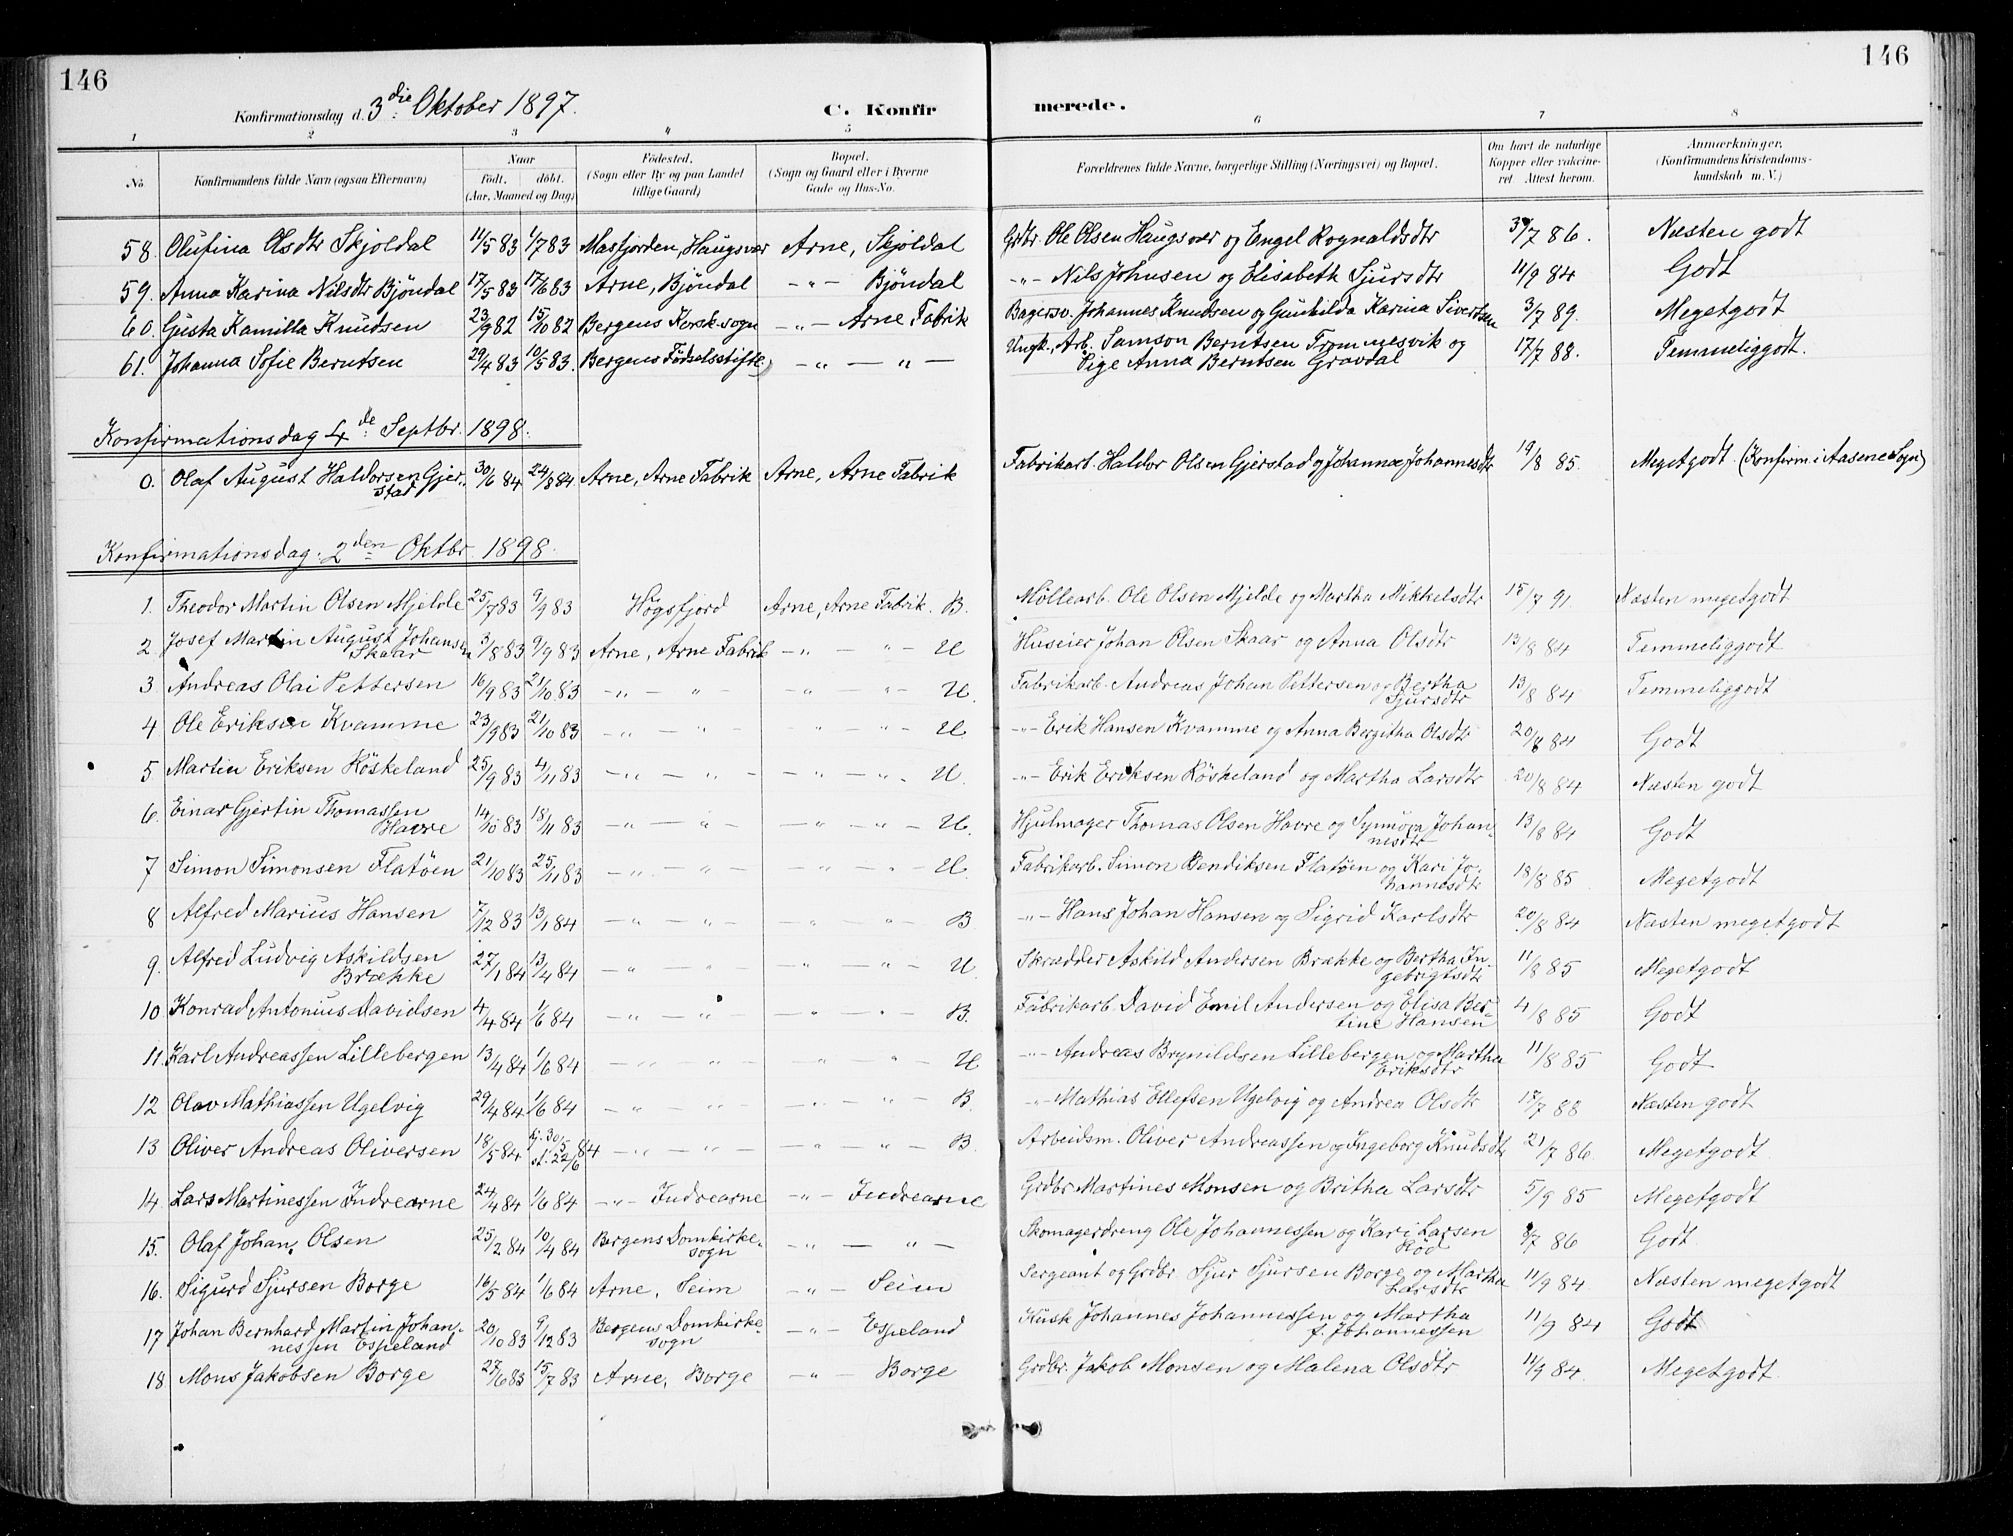 146
146
Konfirmationsdag d. 3die Oktober 1897.
C. Konfir
merede.
1 2 3 4 5 6 7 8
No
Konfirmandens fulde Navn (ogsaa Efternavn)
Naar
Födt. döbt.
(Aar, Maaned og Dag)
Födested.
(Sogn eller By og paa Landet
tillige Gaard)
Bopæl.
(Sogn og Gaard eller i Byerne
Gade og Hus-No.
Forældrenes fulde Navne, borgerlige Stilling (Næringsvei) og Bopæl.
Om havt de naturlige
Kopper eller vakcine-
ret. Attest herom.
Anmærkninger.
(Konfirmandens Kristendoms-
kundskab m. V.)
58. Olufina Olsdtr Skjoldal 11/5 83 1/7 83 Masfjorden, Haugsvær Arne, Skjoldal Grdbr. Ole Olsen Haugsvær og Engel Rognaldsdtr 7 86. Næsten godt
59. Anna Karina Nilsdtr Bjöndal 17/5 83 17/6 83 Arne, Bjöndal -"- Bjöndal -"- Nils Johnsen og Elisabeth Sjursdtr 11/9 84 Godt
60. Gusta Kamilla Knudsen 23/9 82 15/10 82 Bergens Korsk. sogn -"- Arne Fabrik Bagersv. Johannes Knudsen og Gunhilda Karina Sivertsen 3/7 89. Megetgodt
61. Johanna Sofie Berntsen 29/4 83 10/5 83. Bergens Födselsstift. -"- -"- Ungk., Arb. Samson Berntsen Frommesvik og
Pige Anna Berntsen Gravdal 17/7 88. Temmeliggodt.
Konfirmationsdag 4de Septbr. 1898.
0. Olaf August Haldorsen Gjer-
stad 30/6 84 24/8 84 Arne, Arne Fabrik Arne, Arne Fabrik Fabrikarb. Haldor Olsen Gjerstad og Johanna Johannesdtr 19/8 85. Megetgodt (Konfirm. i Aasene Sogn)
Konfirmationsdag: 2den Oktbr. 1898.
1. Theodor Martin Olsen Mjelde 25/7 83 9/9 83 Högsfjord Arne, Arne Fabrik. B. Möllearb. Ole Olsen Mjelde og Martha Mikkelsdtr 15/7 91. Næsten megetgodt
2. Josef Martin August Johansen
Skaar 3/8 83 9/9 83 Arne, Arne Fabrik -"- -"- U Huseier Johan Olsen Skaar og Anna Olsdtr 13/8 84 Temmeliggodt
3 Andreas Olai Pettersen 16/9 83 21/10 83 -"- " -"- U. Fabrikarb. Andreas Johan Pettersen og Bertha
Sjursdtr 13/8 84 Temmeliggodt
4 Ole Eriksen Kvamme 23/9 83 21/10 83 -"- -"- -"- U -"- Erik Hansen Kvamme og Anna Bergitha Olsdtr 20/8 84 Godt
5 Martin Eriksen Röskeland 25/9 83 4/11 83 -"- -"- -"- U. -"- Erik Eriksen Röskeland og Martha Larsdtr 20/8 84 Næsten godt
6. Einar Gjertin Thomassen
Havre 14/10 83 18/11 83 -"- -"- -"- U. Hjulmager Thomas Olsen Havre og Synnöva Johan-
nesdtr 13/8 84 Godt
7 Simon Simonsen Flatöen 21/10 83 25/11 83 -"- -"- -"- U. Fabrikarb. Simon Bendiksen Flatöen og Kari Jo-
hannesdtr 18/8 85 Megetgodt
8 Alfred Marius Hansen 7/12 83 13/1 84 -"- -"- " B -"- Hans Johan Hansen og Sigrid Karlsdtr 20/8 84 Næsten megetgodt
9. Alfred Ludvig Askildsen
Brække 27/1 84 13/4 84 -"- " -"- U. Skrædder Askild Andersen Brække og Bertha In-
gebrigtsdtr 11/8 85 Megetgodt
10 Konrad Antonius Davidsen 4/4 84 1/6 84 -"- -"- " B. Fabrikarb. David Emil Andersen og Elisa Ber-
tine Hansen 4/8 85 Godt
11. Karl Andreassen Lillebergen 13/4 84 1/6 84 -"- " " U -"- Andreas Brynildsen Lillebergen og Martha
Eriksdtr 11/8 85 Godt
12 Olav Mathiassen Ugelvig 29/4 84 1/6 84 -"- -"- -"- B. -"- Mathias Ellefsen Ugelvig og Andrea Olsdtr 17/7 88 Næsten godt
13 Oliver Andreas Oliversen 18/5 84 hj. 30/5 84
st. 22/6 -"- -"- -"- B. Arbeidsm. Oliver Andreassen og Ingeborg Knudsdtr 21/7 86. Megetgodt.
14. Lars Martinessen Indrearne 24/4 84 1/6 84 -"- Indrearne -"- Indrearne Grdbr. Martines Monsen og Britha Larsdtr 5/9 85 Megetgodt
15. Olaf Johan Olsen 25/2 84 10/4 84 Bergens Domkirke-
sogn -"- -"- Skomagerdreng Ole Johannessen og Kari Larsen
Röd /7 86 Godt.
16. Sigurd Sjursen Borge 16/5 84 1/6 84 Arne, Seim -"- Seim Sergeant og Grdbr. Sjur Sjursen Borge og Martha
Larsdtr 11/9 84. Næsten megetgodt
17 Johan Bernhard Martin Johan-
nessen Espeland 20/10 83 9/12 83 Bergens Domkirke-
sogn -"- Espeland Kusk Johannes Johannessen og Martha
f. Johannessen 11/9 84 Godt
18. Mons Jakobsen Borge 27/6 83 15/7 83 Arne, Borge -"- Borge Grdbr. Jakob Monsen og Malena Olsdtr 11/9 84. Megetgodt.